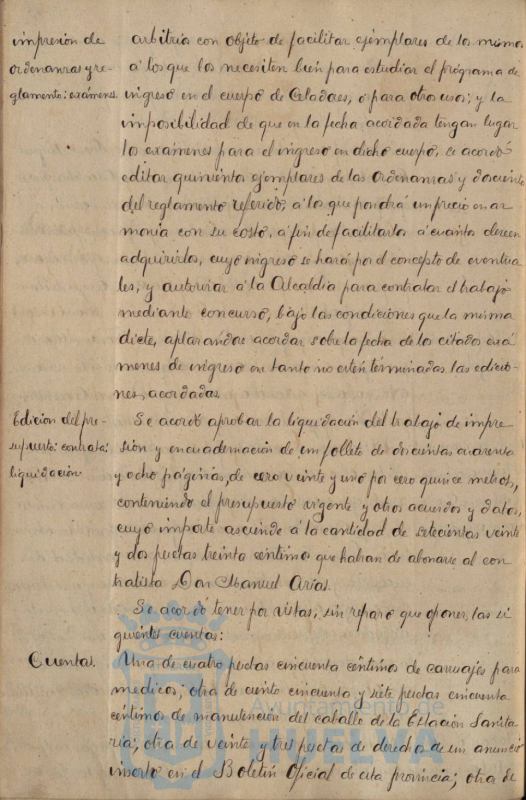 impresión de
ordenanzas y re-
glamento: exámenes.
arbitrios con objeto de facilitar ejemplares de los mismos
á los que los necesiten bien para estudiar el programa de
ingreso en el cuerpo de Celadores, ó para otros usos; y la
imposibilidad de que en la fecha acordada tengan lugar
los exámenes para el ingreso en dicho cuerpo, se acordó
editar quinientos ejemplares de las Ordenanzas y doscientos
del reglamento referido, á los que pondrá un precio en ar
monía con su costo, á fin de facilitarlos á cuantos deseen
adquirirlos, cuyo ingreso se hará por el concepto de eventua
les, y autorizar á la Alcaldía para contratar el trabajo
mediante concurso, bajo las condiciones que la misma
dicte, aplazándose acordar sobre la fecha de los citados exá
menes de ingreso en tanto no estén terminadas las edicio-
nes acordadas.
Edición del pre-
supuesto: contrata:
liquidación.
Se acordó aprobar la liquidación del trabajo de impre
sión y encuadernación de un folleto de doscientas cuarenta
y ocho páginas, de cero veinte y uno por cero quince metros,
conteniendo el presupuesto vigente y otros acuerdos y datos,
cuyo importe asciende á la cantidad de setecientas veinte
y dos pesetas treinta céntimos que habrán de abonarse al con
tratista Don Manuel Arias.
Se acordó tener por vistas, sin reparo que oponer, las si
guientes cuentas:
Cuentas.
Una de cuatro pesetas cincuenta céntimos de carruajes para
medicos; otra de ciento cincuenta y siete pesetas cincuenta
céntimos de manutención del caballo de la Estación Sanita
ria; otra de veinte y tres pesetas de derechos de un anuncio
inserto en el Boletín Oficial de esta provincia; otra de
Ayuntamiento de
HUELVA